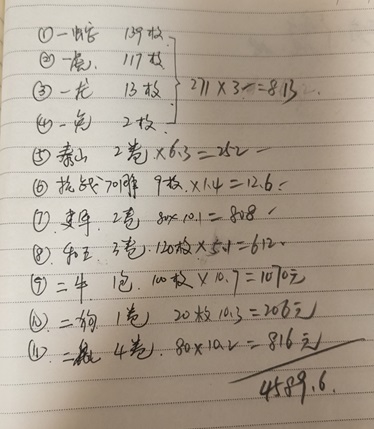 ① 一蛇 139枚
② 一虎. 117枚
③ 一龙 13枚
④ 一兔 2枚. 271×3=813.
⑤ 泰山 2卷×6.3=252
⑥ 抗战70周年 9枚.×1.4=12.6.
⑦ 2卷 80×10.1=808
⑧ 和五 3卷.120枚×5.1=612.
⑨ 二牛 1包. 100枚×10.7=1070元
⑩ 二狗 1卷 20枚10.3=206元
⑪ 二鼠 4卷. 80×10.2=816元
4589.6.